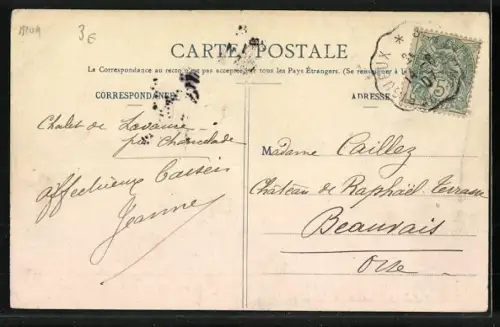 3 €
CARTE POSTALE
La Correspondance au recto n'est pas acceptée par tous les Pays Étrangers. (Se renseigner à la
CORRESPONDANCE
ADRESSE
Chalet de
par Chancelade
affectueux baisers
Jeanne
Madame Caillez
Château de Raphaël-Terrasse
Beauvais
Oise